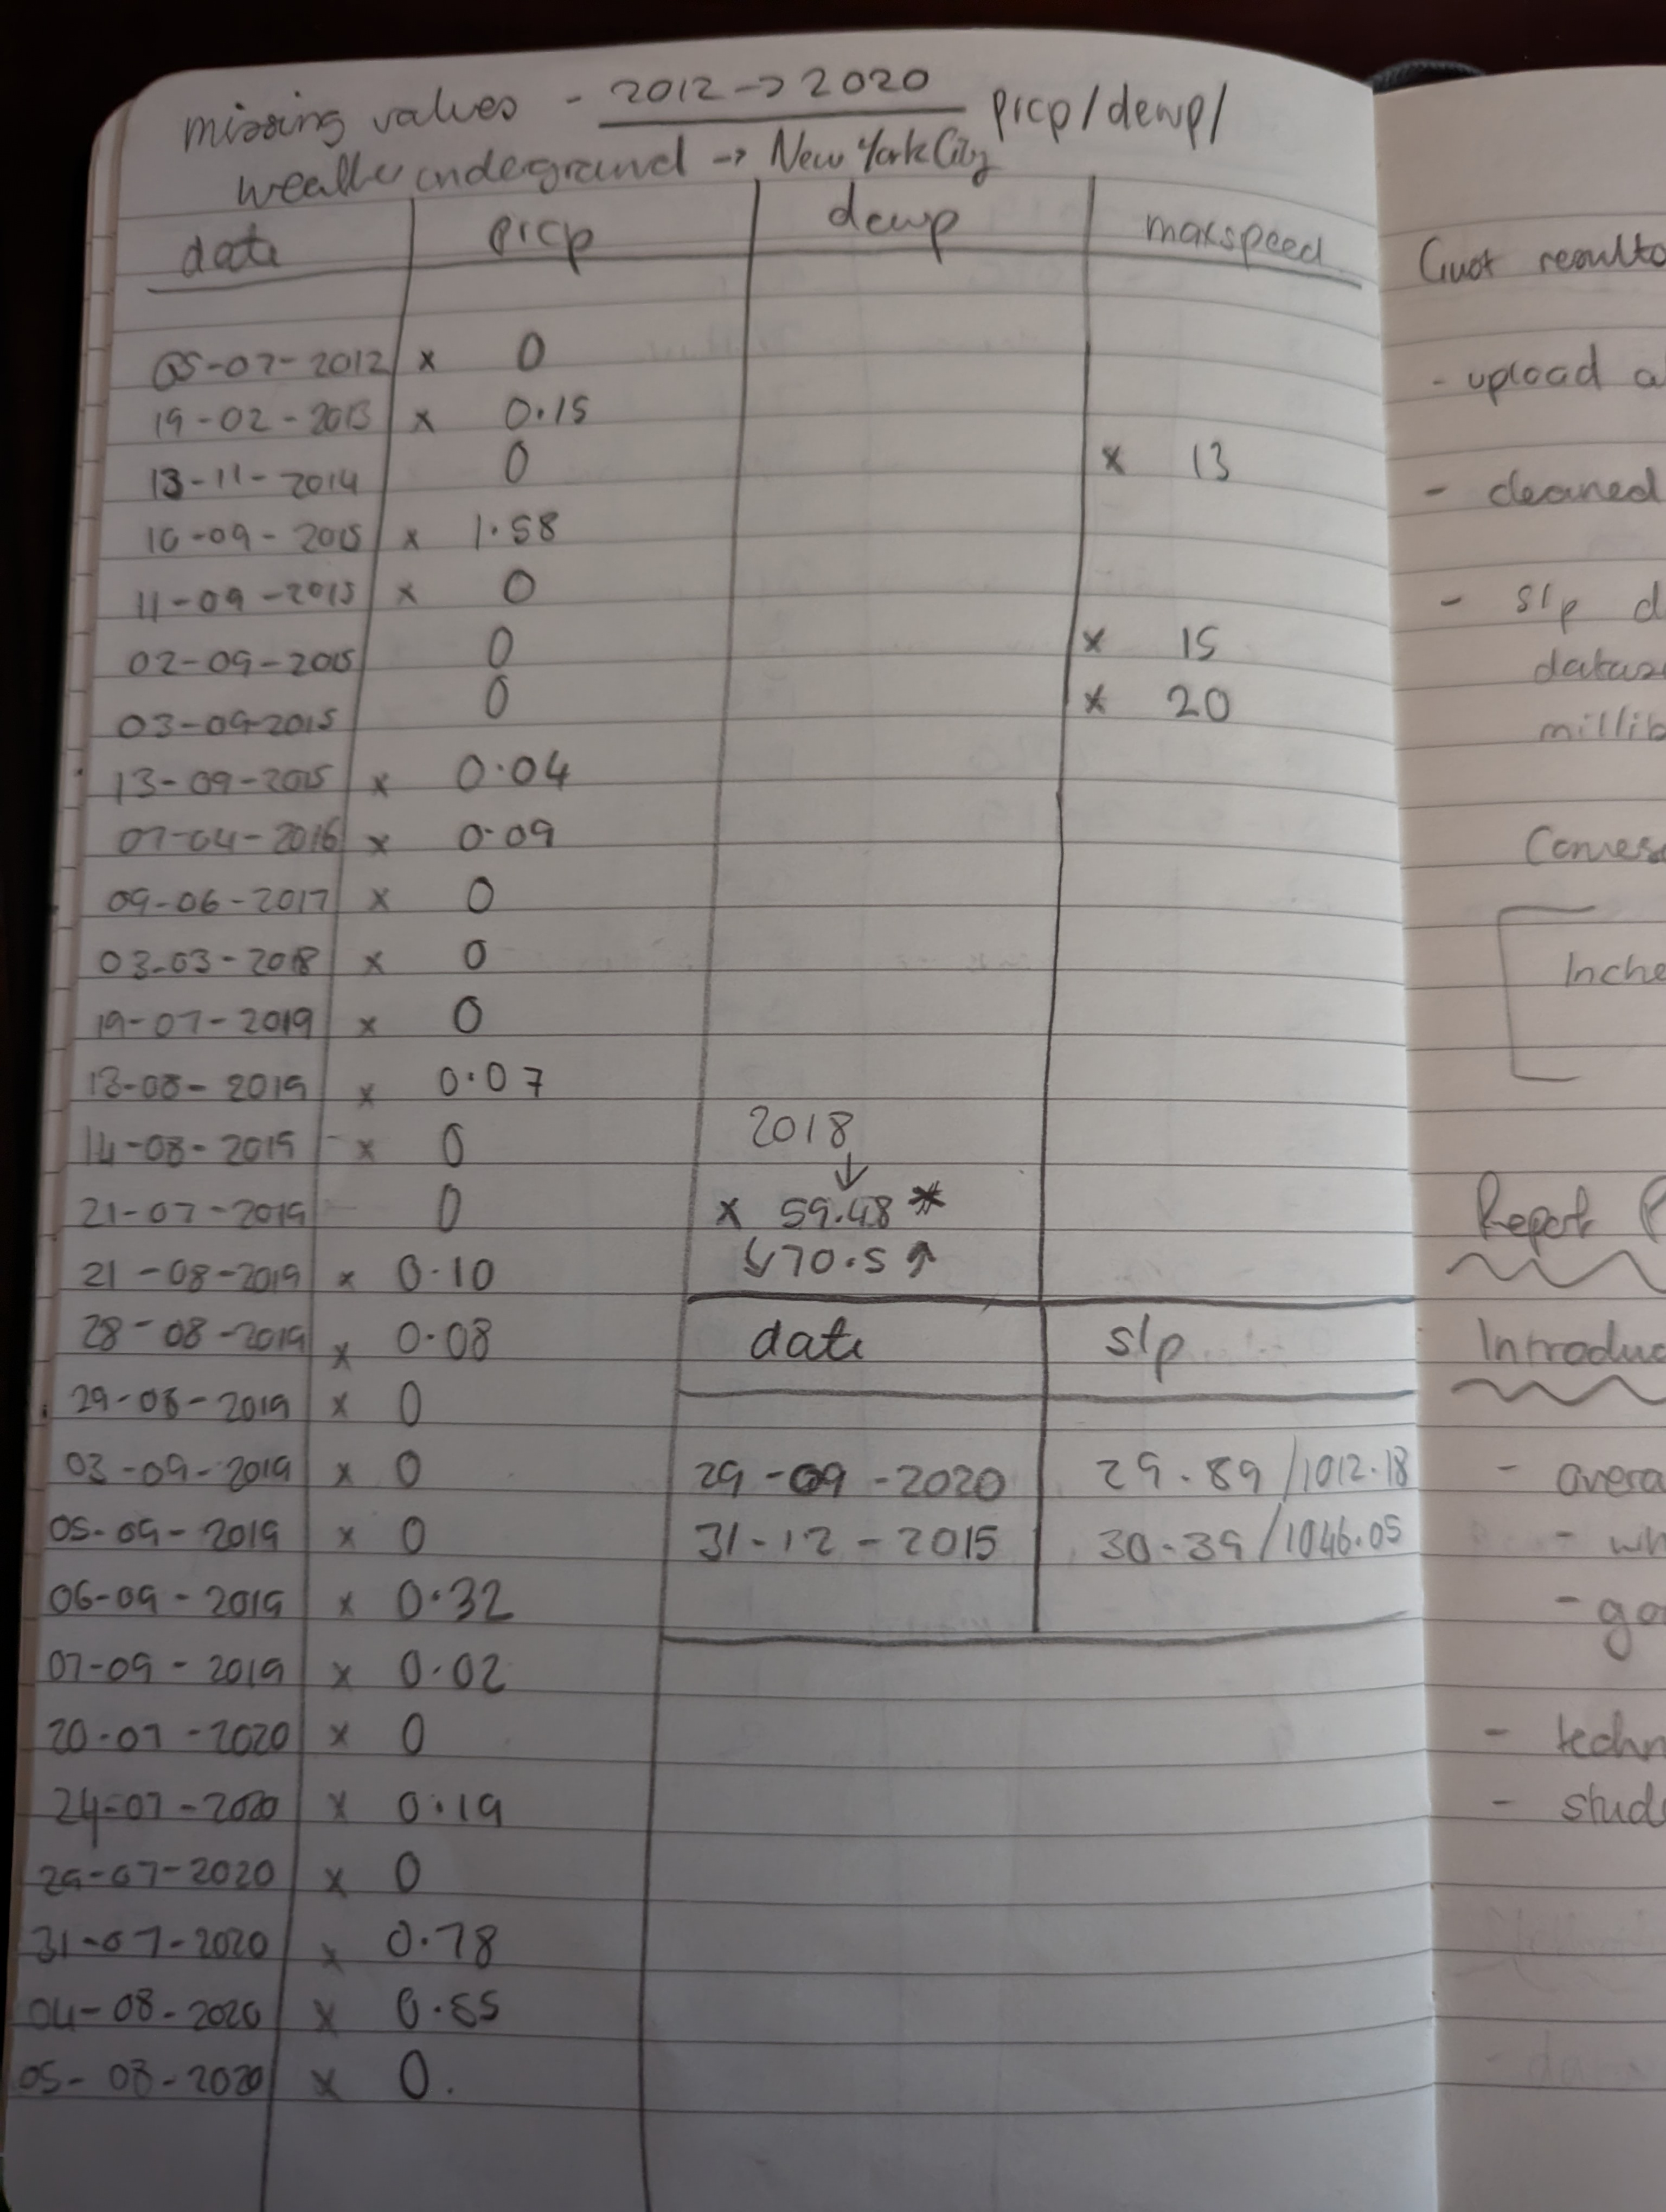 missing values - 2012 → 2020 prcp/dewp/
weather underground → New York City
date prcp dewp maxspeed
05-07-2012 x 0
19-02-2013 x 0.15
13-11-2014 0 x 13
10-09-2015 x 1.58
11-09-2015 x 0
02-09-2015 0 x 15
03-09-2015 0 x 20
13-09-2015 x 0.04
07-04-2016 x 0.09
09-06-2017 x 0
03-03-2018 x 0
19-07-2019 x 0
13-08-2019 x 0.07
2018
↓
14-08-2019 x 0
21-07-2019 0 x 59.48 *
↓70.5 ↑
21-08-2019 x 0.10
28-08-2019 x 0.08
29-08-2019 x 0
03-09-2019 x 0
05-09-2019 x 0
06-09-2019 x 0.32
07-09-2019 x 0.02
20-07-2020 x 0
24-07-2020 x 0.19
29-07-2020 x 0
31-07-2020 x 0.78
04-08-2020 x
05-08-2020 x 0.
date slp
29-09-2020 29.89/1012.18
31-12-2015 30.39/1046.05
results
- upload
- cleaned
- slp
Report
-
-
-
- techn
- stud